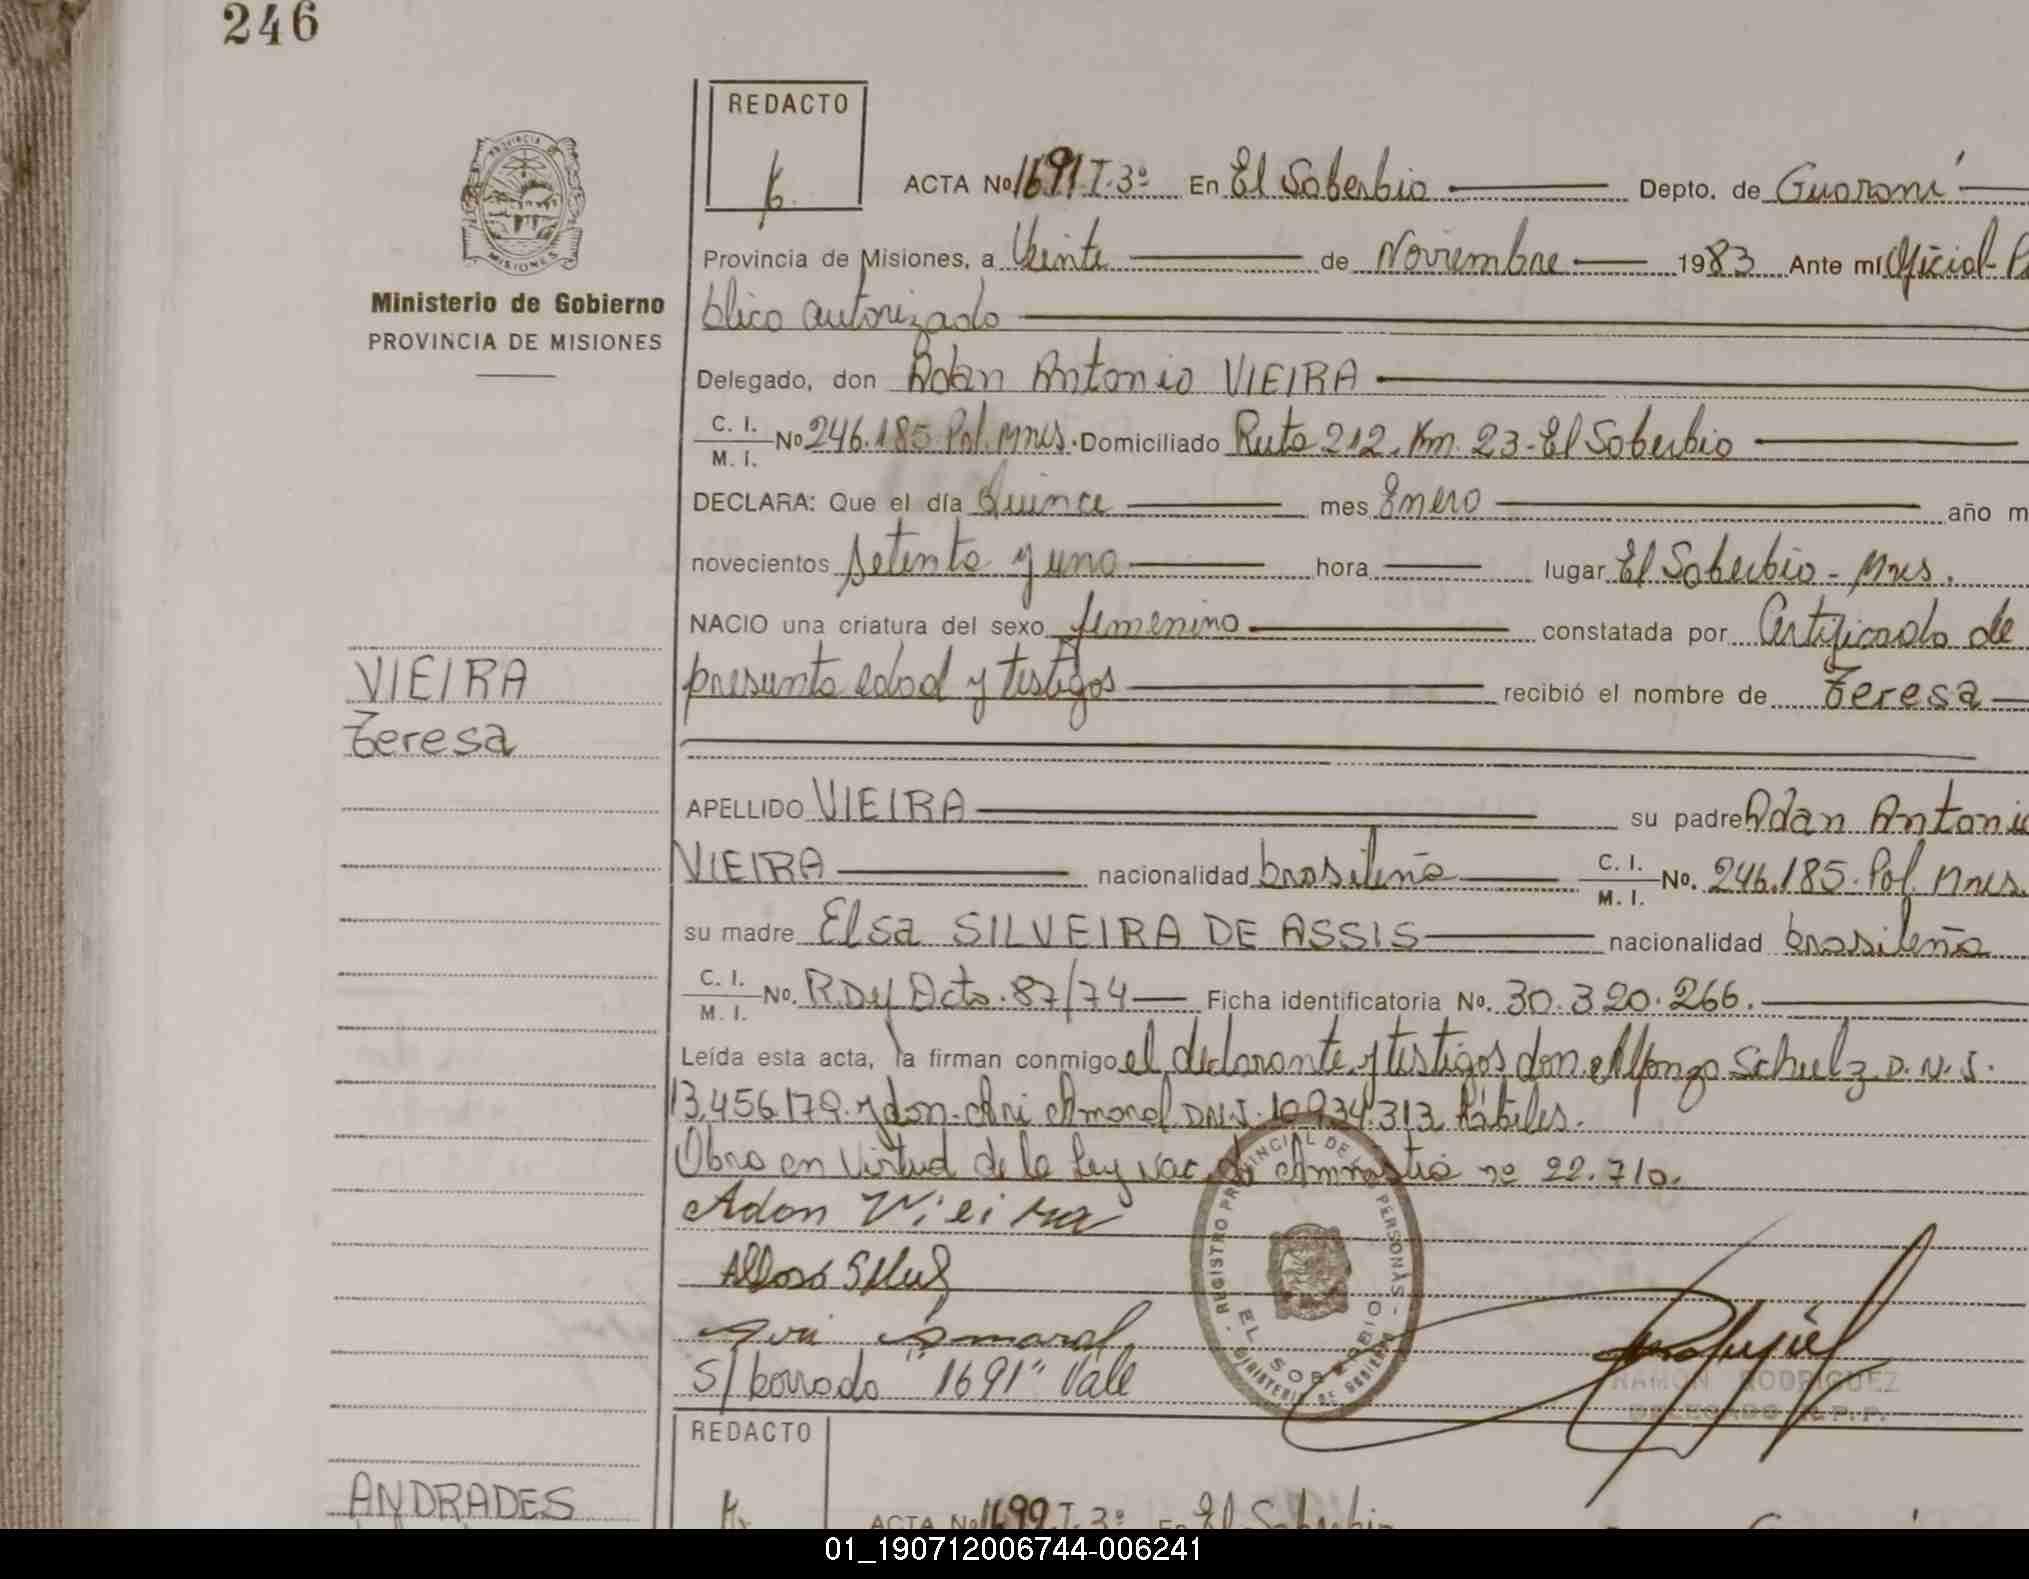 246
REDACTO
ACTA No 1691.T.3º En El Soberbio Depto. de Guaraní
Provincia de Misiones, a Veinte de Noviembre 1983 Ante mí Oficial P
blico autorizado
Ministerio de Gobierno
PROVINCIA DE MISIONES
Delegado, don Adan Antonio VIEIRA
C. I.
M. I.
No 246.185 Pol. Mnes. Domiciliado Ruta 212. Km. 23-El Soberbio
DECLARA: Que el día Quince mes Enero año m
novecientos setenta y uno hora lugar El Soberbio - Mnes.
NACIO una criatura del sexo femenino constatada por Certificado de
presunta edad y testigos recibió el nombre de Teresa
VIEIRA
Teresa
APELLIDO VIEIRA su padre Adan Antonio
VIEIRA nacionalidad brasileña C. I. M. I. No. 246.185. Pol. Mnes.
su madre Elsa SILVEIRA DE ASSIS nacionalidad brasileña
C. I.
M. I.
No. Dcto. 87/74 Ficha identificatoria No. 30.320.266.
Leída esta acta, la firman conmigo el declarante y testigos don Alfonzo Schulz D.N.I.
13.456.179. y don Ari Amaral DNI. 10.934.313 hábiles.
Obra en virtud de la Ley Nac. de Amnistia nº 22.710.
Adan Vieira
Ari Amaral
s/borrado "1691" Vale
REGISTRO PROVINCIAL DE PERSONAS
EL SOBERBIO
MINISTERIO DE GOBIERNO
RAMON RODRIGUEZ
DELEGADO R.P.P.
REDACTO
ANDRADES
ACTA No 1699.T.3º En El Soberbio
01_190712006744-006241